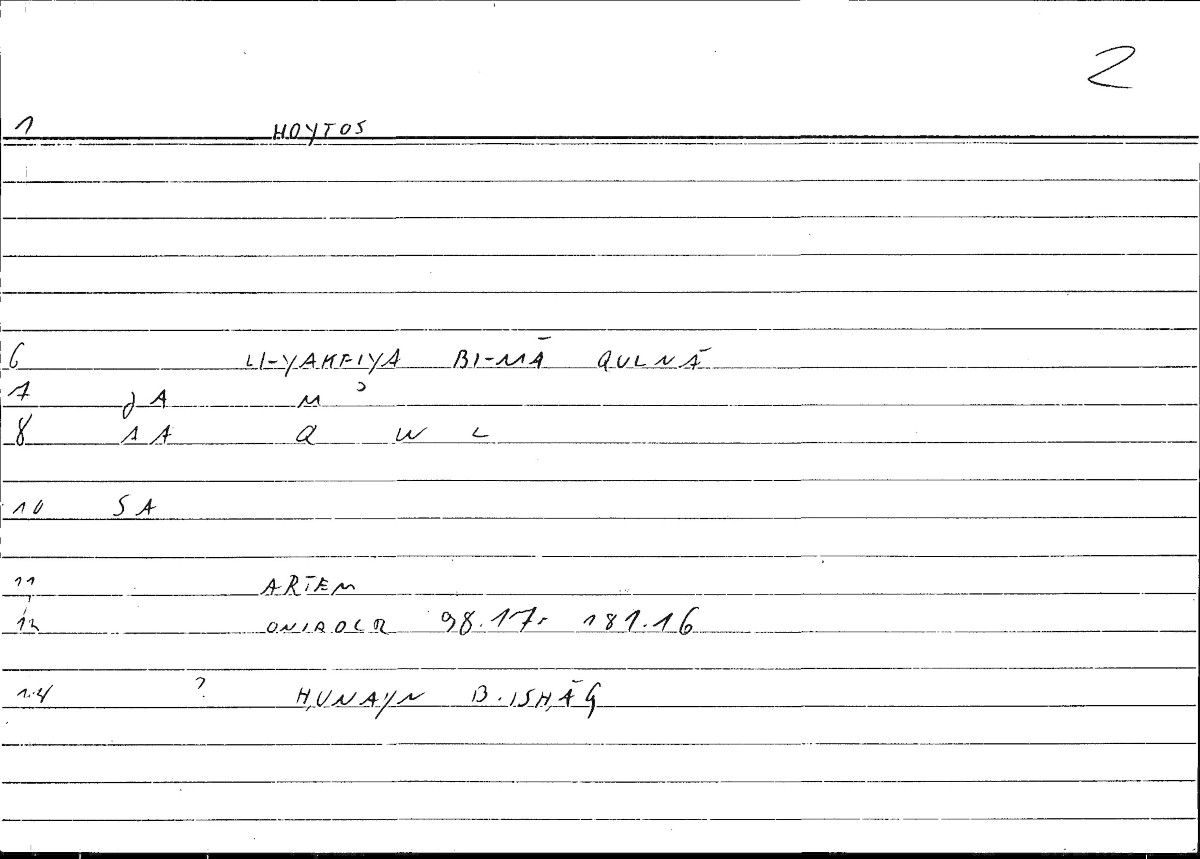 2
1 HOYTOS
6 LI-YAKFIYA BI-MĀ QULNĀ
7 ZA M ʾ
8 1A Q W L
10 SA
11 ARTEM
12 ONIROCR 98.17- 181.16
14 ? ḤUNAYN B.ISḤĀQ